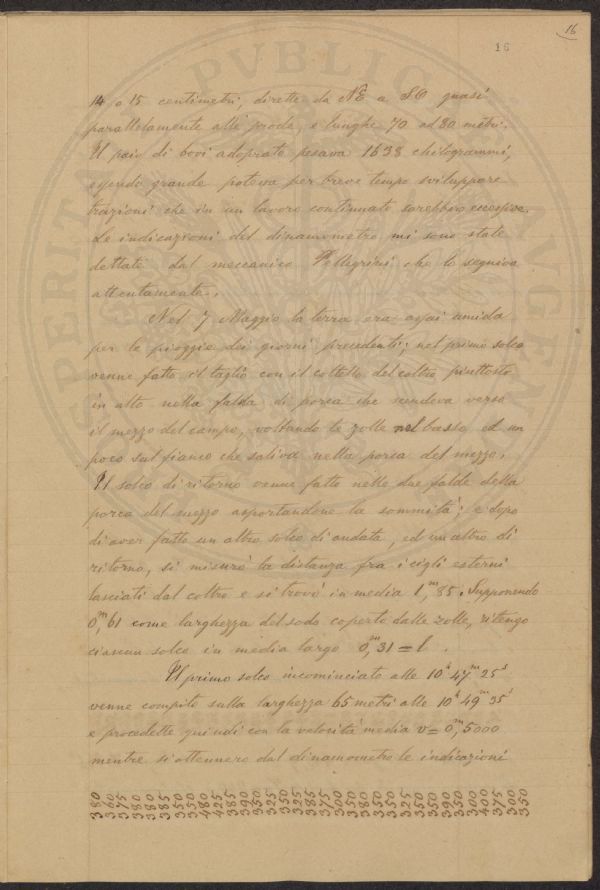 16
16
14 o 15 centimetri, dirette da NE a SO quasi
parallelamente alle prode, e lunghe 70 ad 80 metri.
Il paio di bovi adoprato pesava 1638 chilogrammi,
essendo grande poteva per breve tempo sviluppare
trazioni che in un lavoro continuato sarebbero eccessive.
Le indicazioni del dinamometro mi sono state
dettate dal meccanico Pellegrini che lo seguiva
attentamente.
Nel 7 Maggio la terra era assai umida
per le pioggie dei giorni precedenti; nel primo solco
venne fatto il taglio con il coltello del coltro piuttosto
in alto nella falda di porca che scendeva verso
il mezzo del campo, voltando le zolle nel basso ed un
poco sul fianco che saliva nella porca del mezzo.
Il solco di ritorno venne fatto nelle due falde della
porca del mezzo asportandone la sommità; e dopo
di aver fatto un altro solco di andata, ed un altro di
ritorno, si misurò la distanza fra i cigli esterni
lasciati dal coltro e si trovò in media 1,m85. Supponendo
0,m61 come larghezza del sodo coperto dalle zolle, ritengo
ciascun solco in media largo 0,m31 = l.
Il primo solco incominciato alle 10h 47m 25s
venne compito sulla larghezza 65 metri alle 10h 49m 35s
e procedette quindi con la velocità media v = 0,m5000
mentre si ottennero dal dinamometro le indicazioni
380
360
375
380
380
385
350
350
480
425
385
390
350
325
350
325
385
375
300
350
380
350
350
325
350
350
390
350
300
400
375
300
350
PUBLICA
VERITAS
AUGENDA